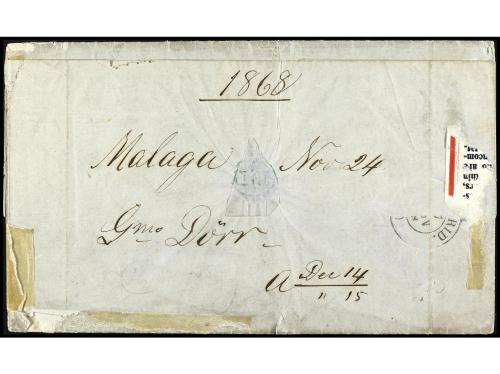 1868
Malaga Nov 24
Gmo Dörr
a Dec 14
" 15
RID.